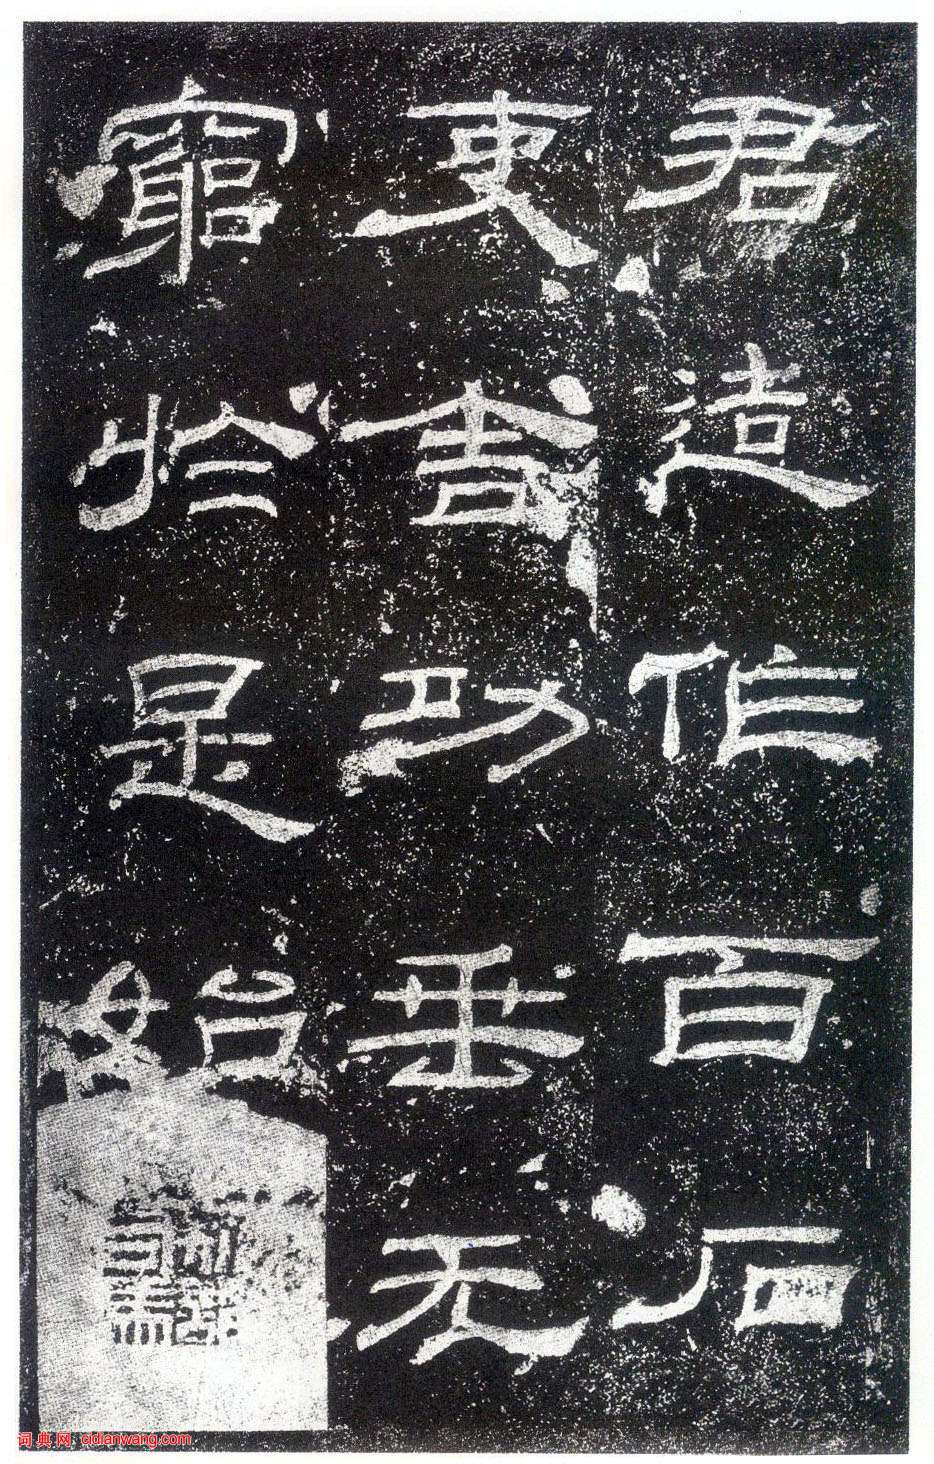 君造作百石
吏舍功垂无
窮於是始
词典网 cidianwang.com